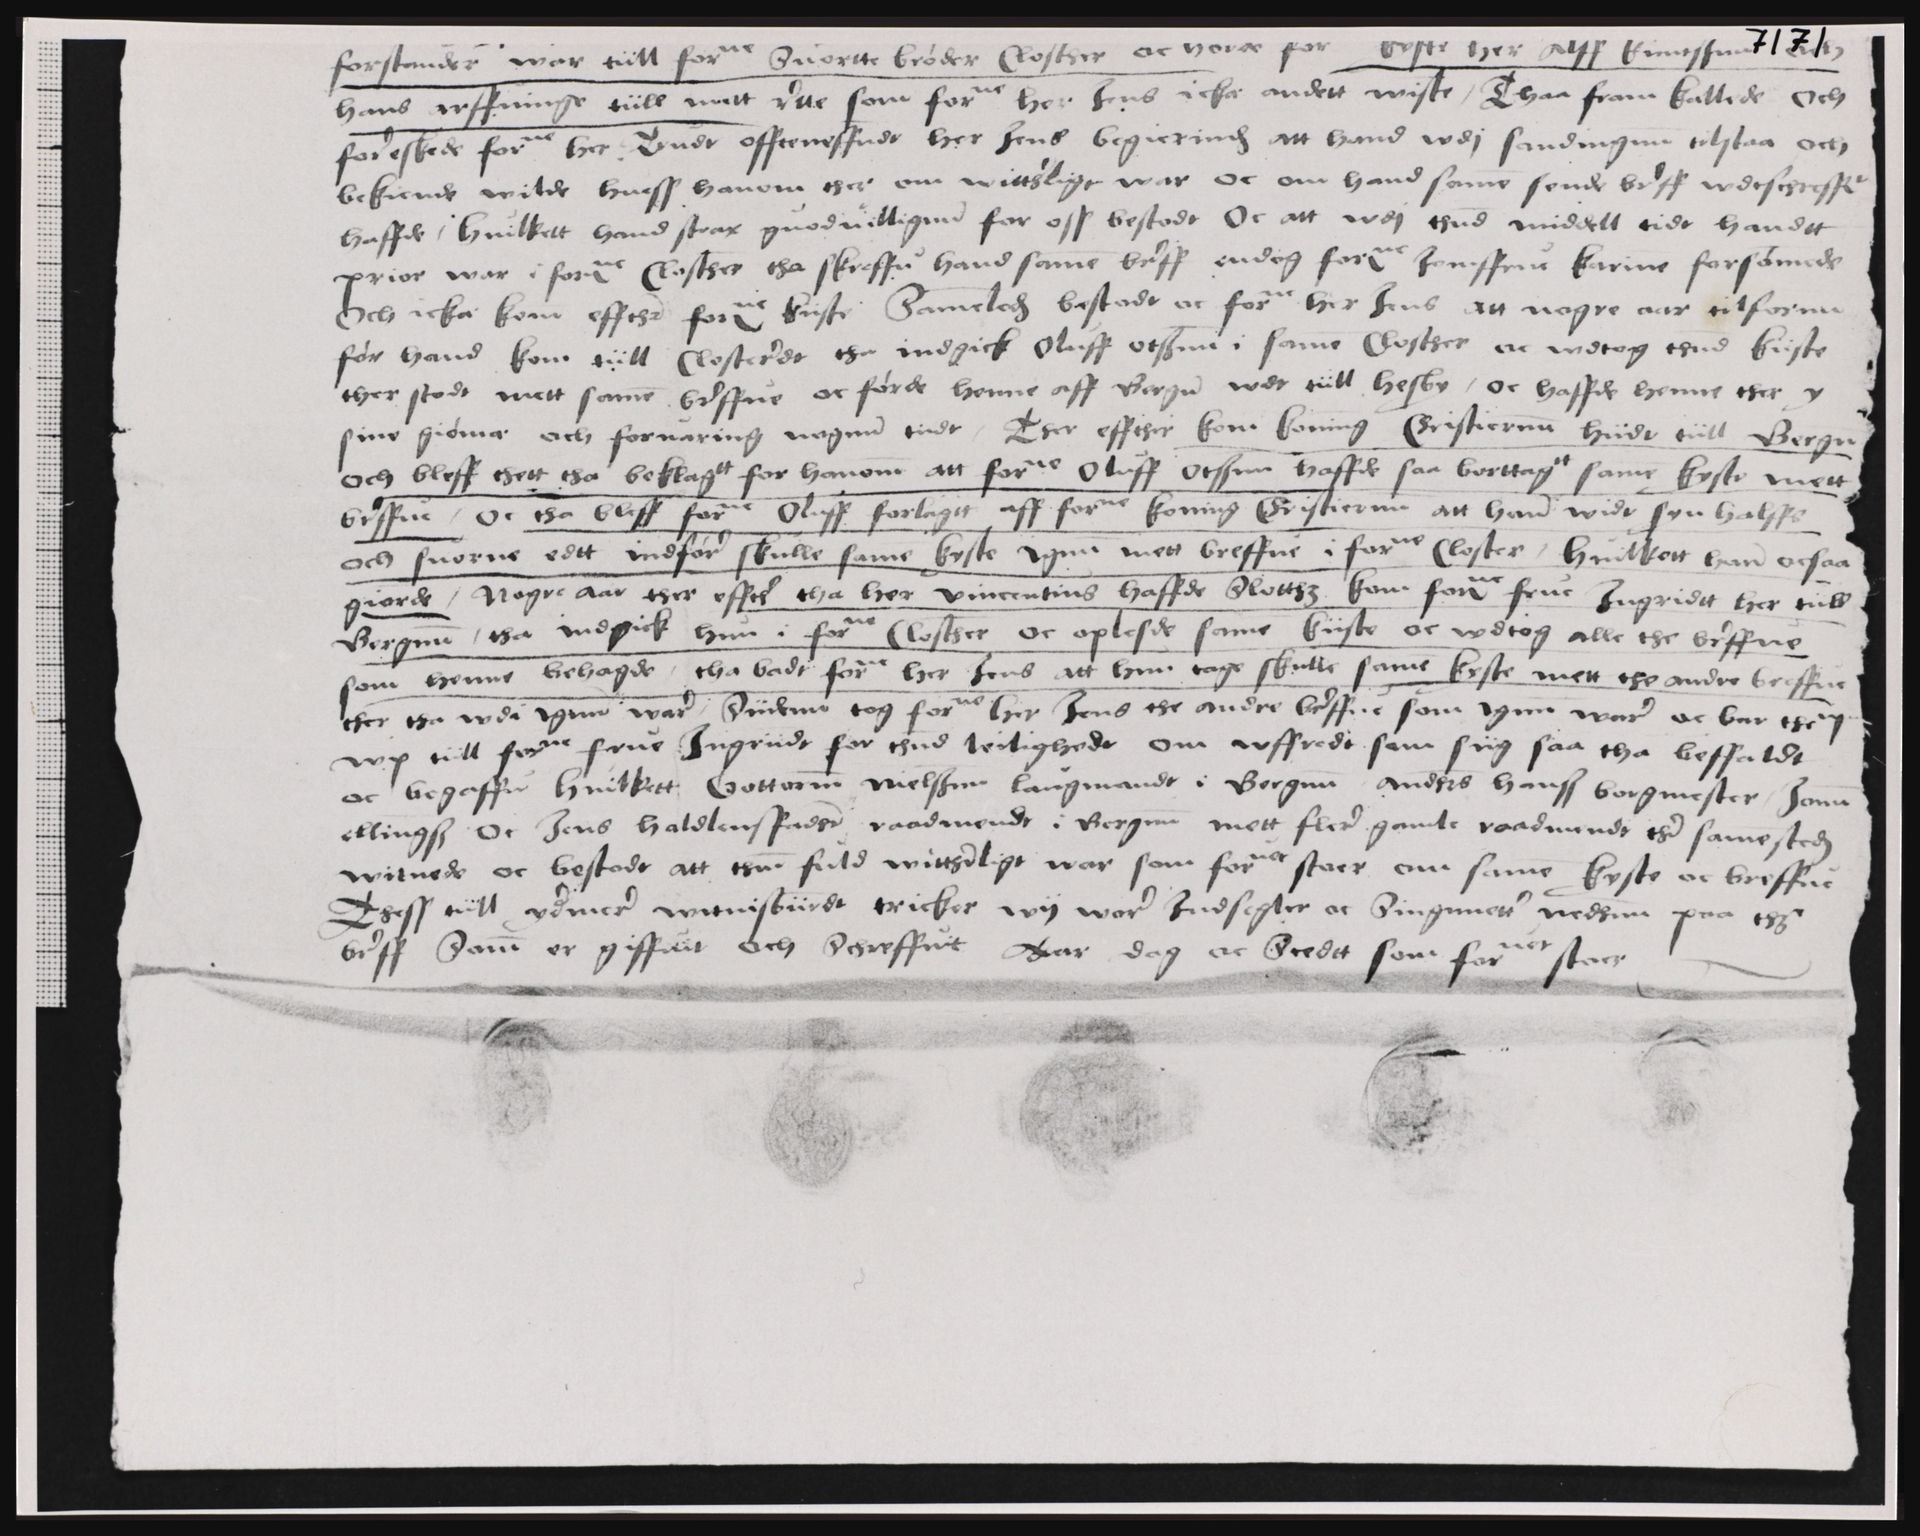 7171
forstander war tiill forne Suortte brøder Closther oc vore for kyste her Alff knutssun och
hans arffuinge tiill mett rette som forne her Jens icke andett wiste / Thaa fram kallede Och
foreskede forne her Trudt offteneffndt her Jens begierind att hand wdj sandingnn tilstaa och
bekiende wilde huess hanom ther om witthrligt war oc om hand same sende breff wdtschreffet
haffde / huilkett hand strax guoduillignn for oss bestodt Oc att wdj thnd middell tidt handtt
prior war i forne Closther tha skreffu hand same breff endog forne Jomffrue karine forsømede
Och icka kom effther forne kiiste Sameled bestodt oc forne her Jens att nogre aar tilfornn
før hand kom tiill Closterdt tha indgick Oluff otssnn i same Closther oc wdtog thnd kiiste
ther stodt mett same breffue oc førde henne aff Bergn wdt tiill hesby / oc haffde henne ther y
sine giømæ och foruaring nognn tiidt / Ther effther kom koning Cristiernn hiidt tiill Bergn
och bleff thett tha beklagtt for hanom att forne Oluff otssnn haffde saa borttagtt same kyste mett
breffue / Oc tha bleff forne Oluff forlagtt aff forne koning Cristiernn att han widt syn halss
och suorne edtt indfør skulle same kyste ygnn mett breffue i forne Closter / huilkett han ocsaa
giorde / Nogre aar ther effter tha her vincentius haffde Slotthz kom forne frue Ingridtt her tiill
Bergnn / tha indgick hun i forne Closther oc oplesde same kiiste oc wdtog alle the breffue
som henne behagde / tha badt forne her Jens att hun tage skulle same kyste mett the andre breffue
ther tha wdi ygnn war / Siidenn tog forne her Jens the andre breffue som ygnn war oc bar them
wp tiill forne frue Ingriidt for thnd leilighedt om wffredt som siig saa tha beffaldt
oc begaffu huilkett Gottorm nielssnn laugmandt i Bergnn Anders hanss borgmester / Jonn
ellings Oc Jens haldlenffader raadmendt i Bergnn mett flere gamle raadmendt ther samested
witnede oc bestodt att thm fuld wittherligt war som fornet staer om same kyste oc breffue
Thess tiill ydermer witnisbiirdt tricker wij wor Indsegler oc Singnetter nednn paa the
breff Som er giffuit och Schreffuit Aar dag oc Stedtt som fornet staer